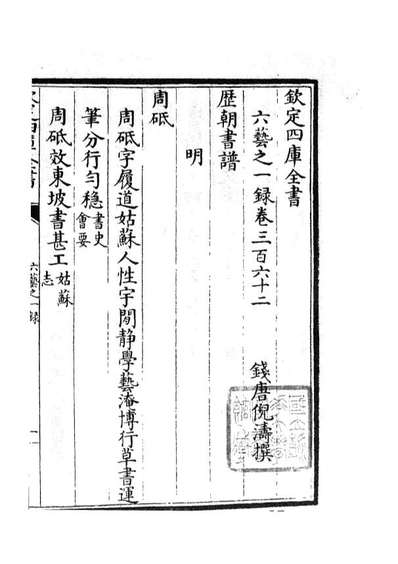 欽定四庫全書
六藝之一録卷三百六十二 錢唐倪濤撰
歴朝書譜
明
周砥
周砥字履道姑蘇人性宇閒靜學藝淹博行草書運
筆分行勻稳書史會要
周砥效東坡書甚工姑蘇志
六藝之一録